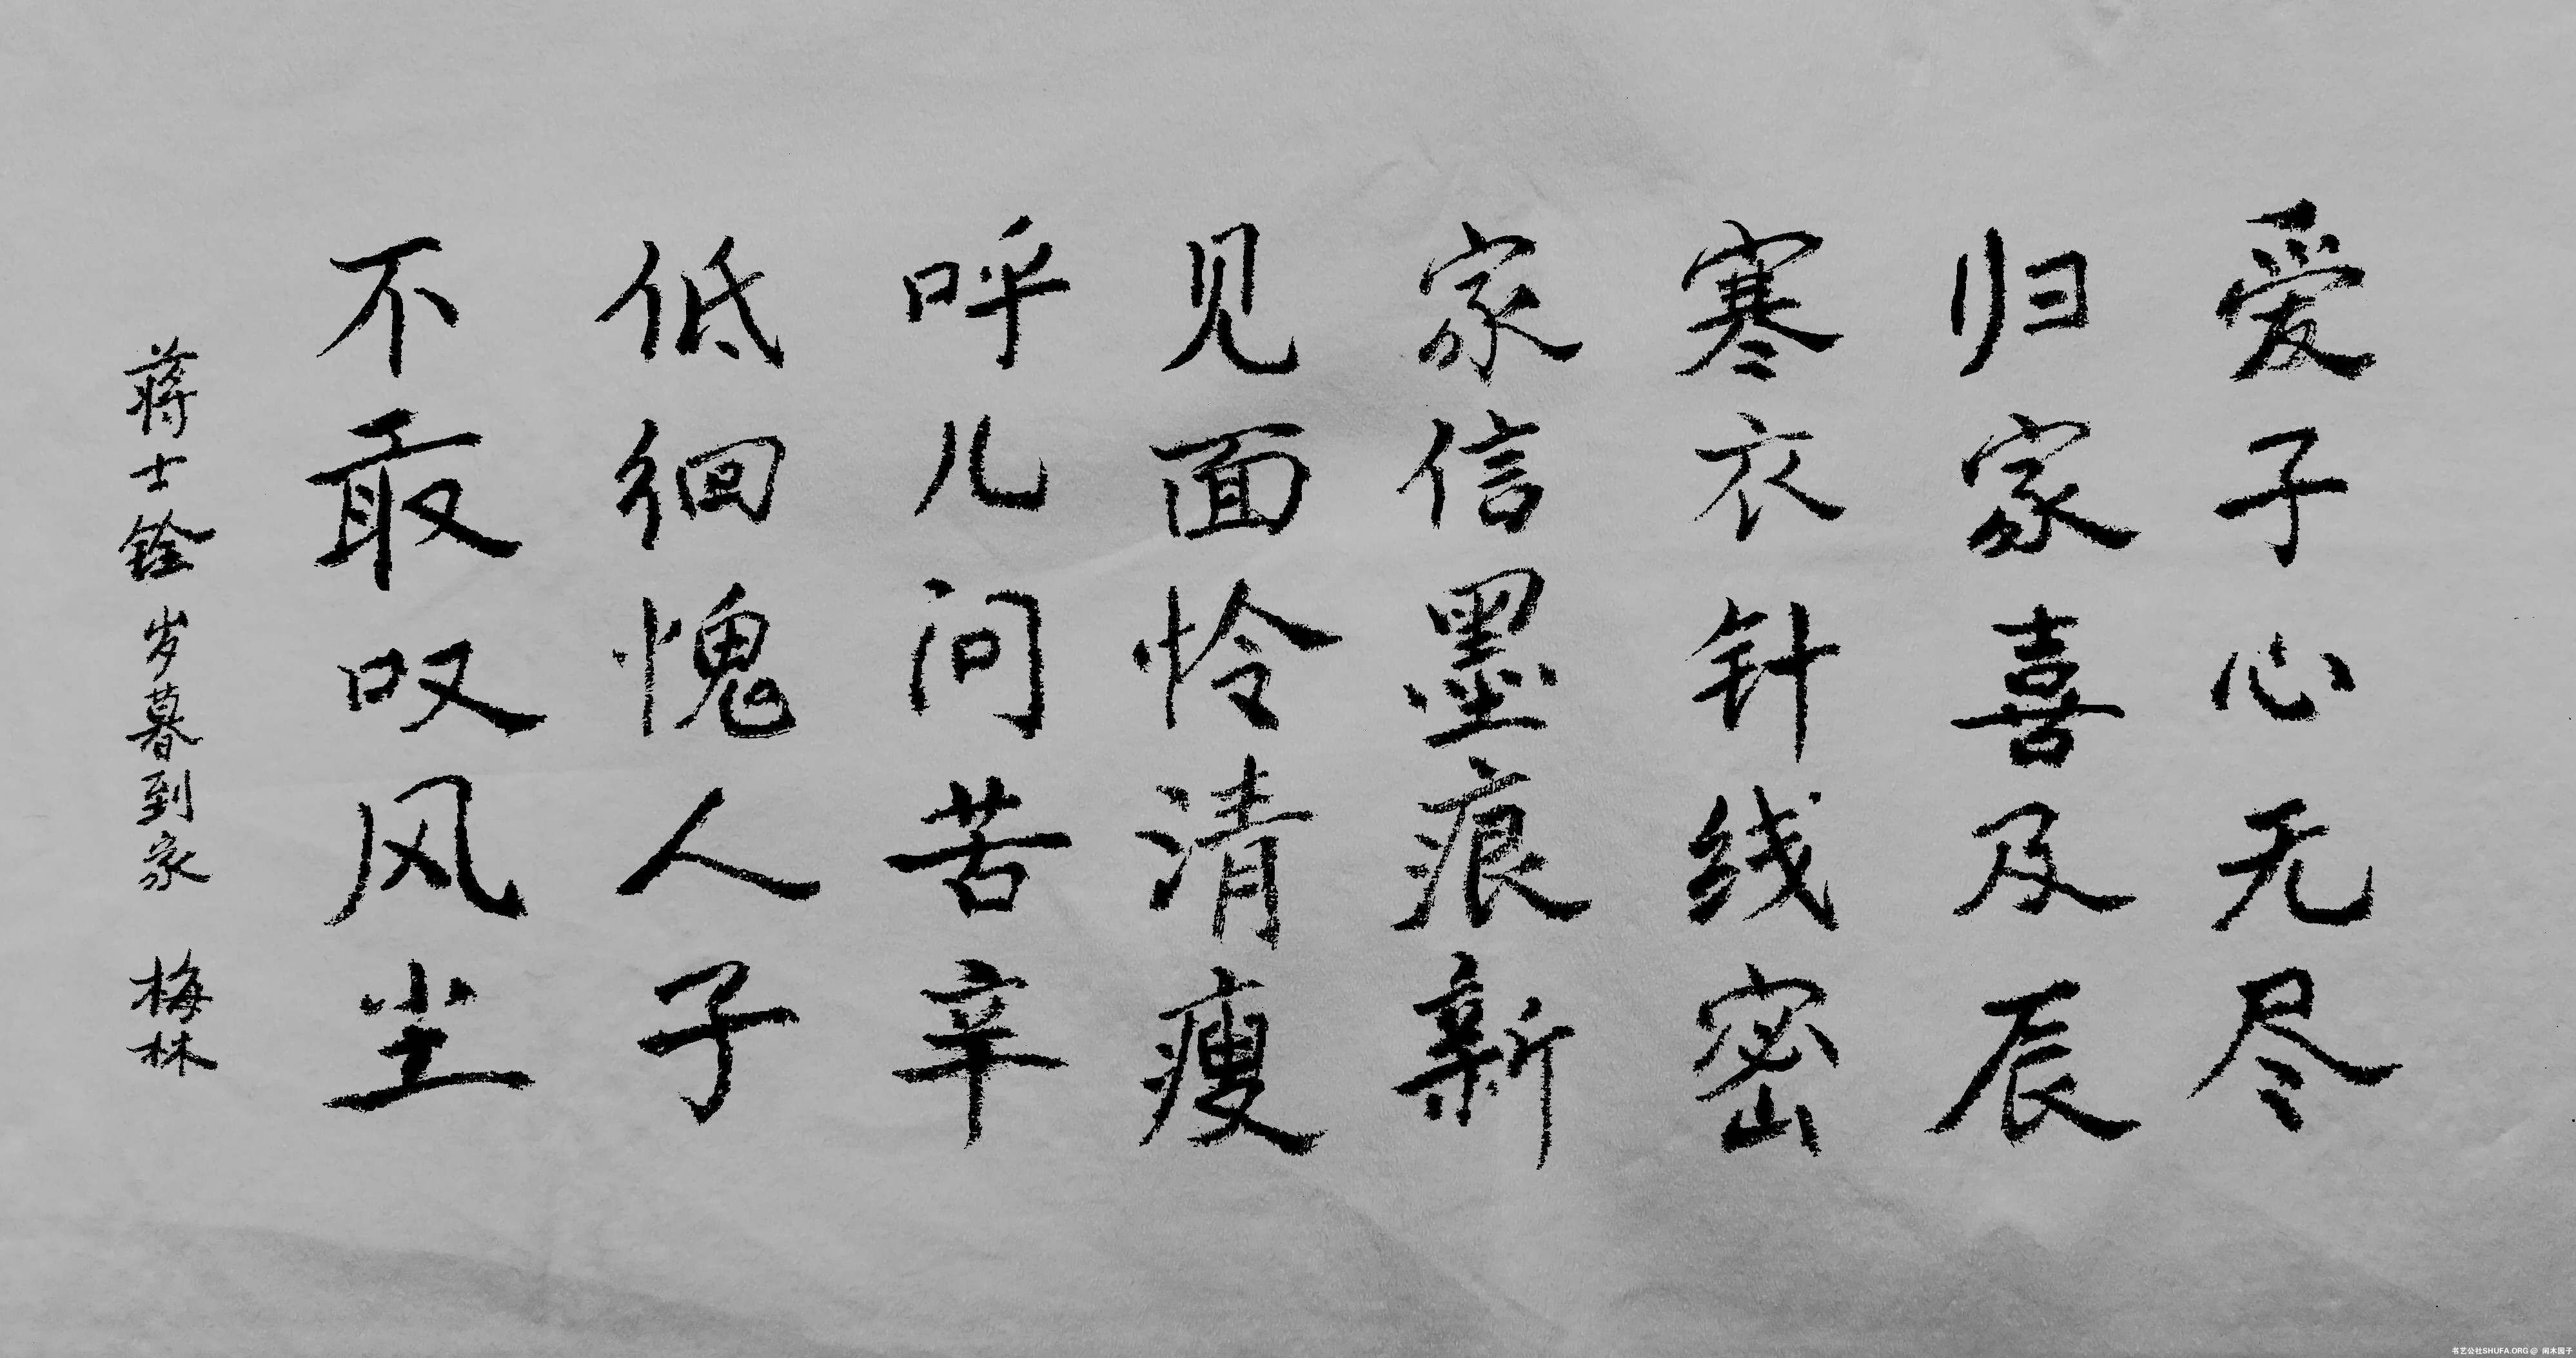 爱子心无尽
归家喜及辰
寒衣针线密
家信墨痕新
见面怜清瘦
呼儿问苦辛
低徊愧人子
不敢叹风尘
蒋士铨 岁暮到家 梅林
书艺公社SHUFA.ORG@ 闲木园子